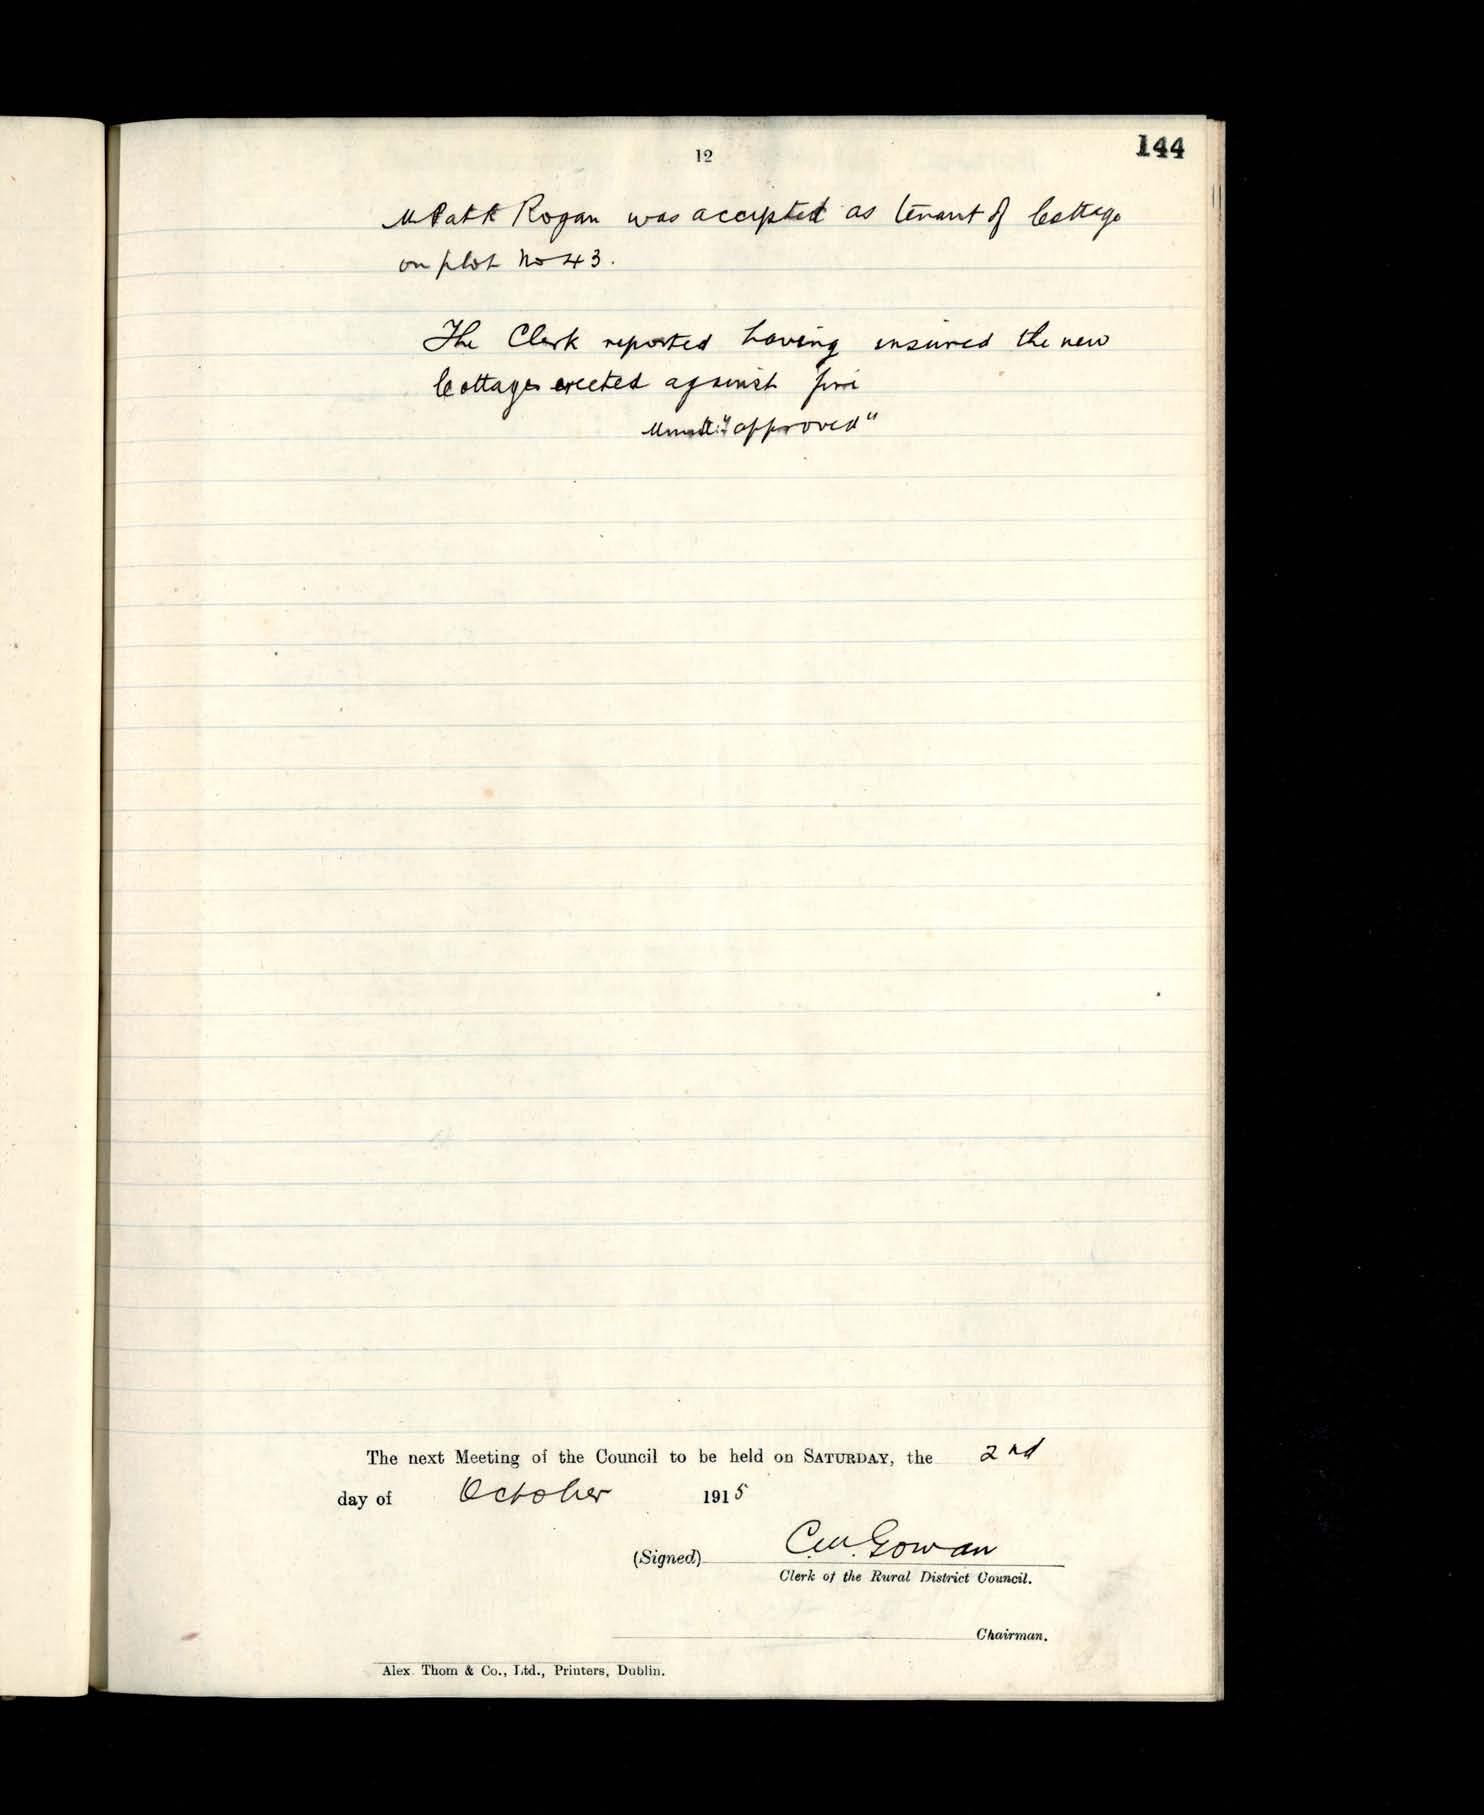 12
144
Mr Patk Rogan was accepted as tenant of Cottage
on plot No 43.
The Clerk reported having insured the new
Cottages erected against fire
"approved"
The next Meeting of the Council to be held on SATURDAY, the 2nd
day of October 1915
(Signed) Gowan
Clerk of the Rural District Council.
Chairman.
Alex. Thom & Co., Ltd., Printers, Dublin.